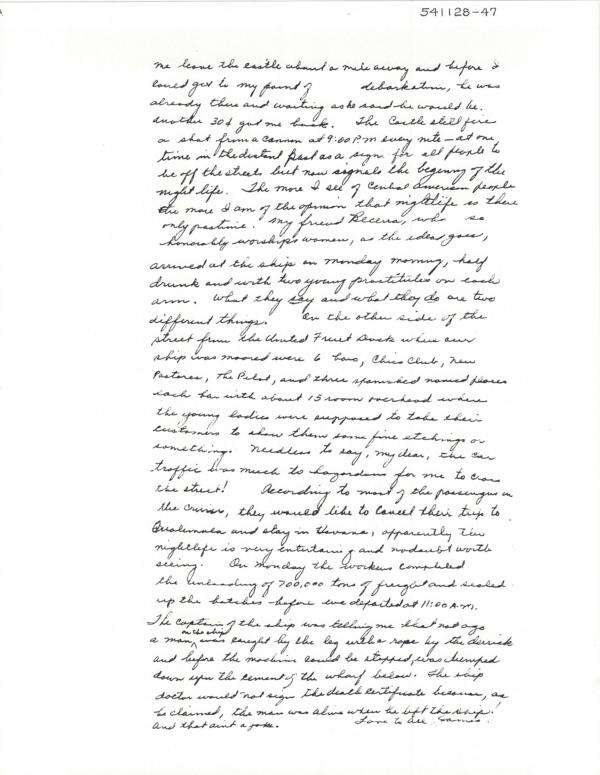 541128-47
me leave the castle about a mile away and before I
could get to my point of debarkation, he was
already there and waiting as he said he would be.
Another 30¢ got me back. The Castle still fire
a shot from a cannon at 9:00 P.M every nite - at one
time in the distant past as a sign for all people to
be off the streets but now signals the begenng of the
night life. The more I see of Central American people
the more I am of the opinion that nightlife is there
only pastime. My friend Becerra, who so
honorably worships women, as the idea goes,
arrived at the ship on monday morning, half
drunk and with two young prostitutes on each
arm. What they say and what they do are two
different things. On the other side of the
street from the United Fruit Dock where our
ship was moored were 6 bars, Chico Club, New
Pastores, The Pilot, and three spanished named places
each bar with about 15 room overhead where
the young ladies were supposed to take their
customers to show them some fine etchings or
something. Needless to say, my dear, the car
traffic was much to hazardous for me to cross
the street! According to most of the passengers on
the cruise, they would like to cancel their trip to
Guatemala and stay in Havana, apparently the
nightlife is very entertaing and nodoubt worth
seeing. On Monday the workers completed
the unloading of 700,000 tons of freight and sealed
up the hatches before we departed at 11:00 A.M.
The captain of the ship was telling me that not ago
a man on the ship was caught by the leg with a rope by the derrick
and before the machine could be stopped, was dumped
down upon the cement of the wharf below. The ship
doctor would not sign the death certificate because, as
he claimed, the man was alive when he left the ship!
And that aint a joke. Love to all,